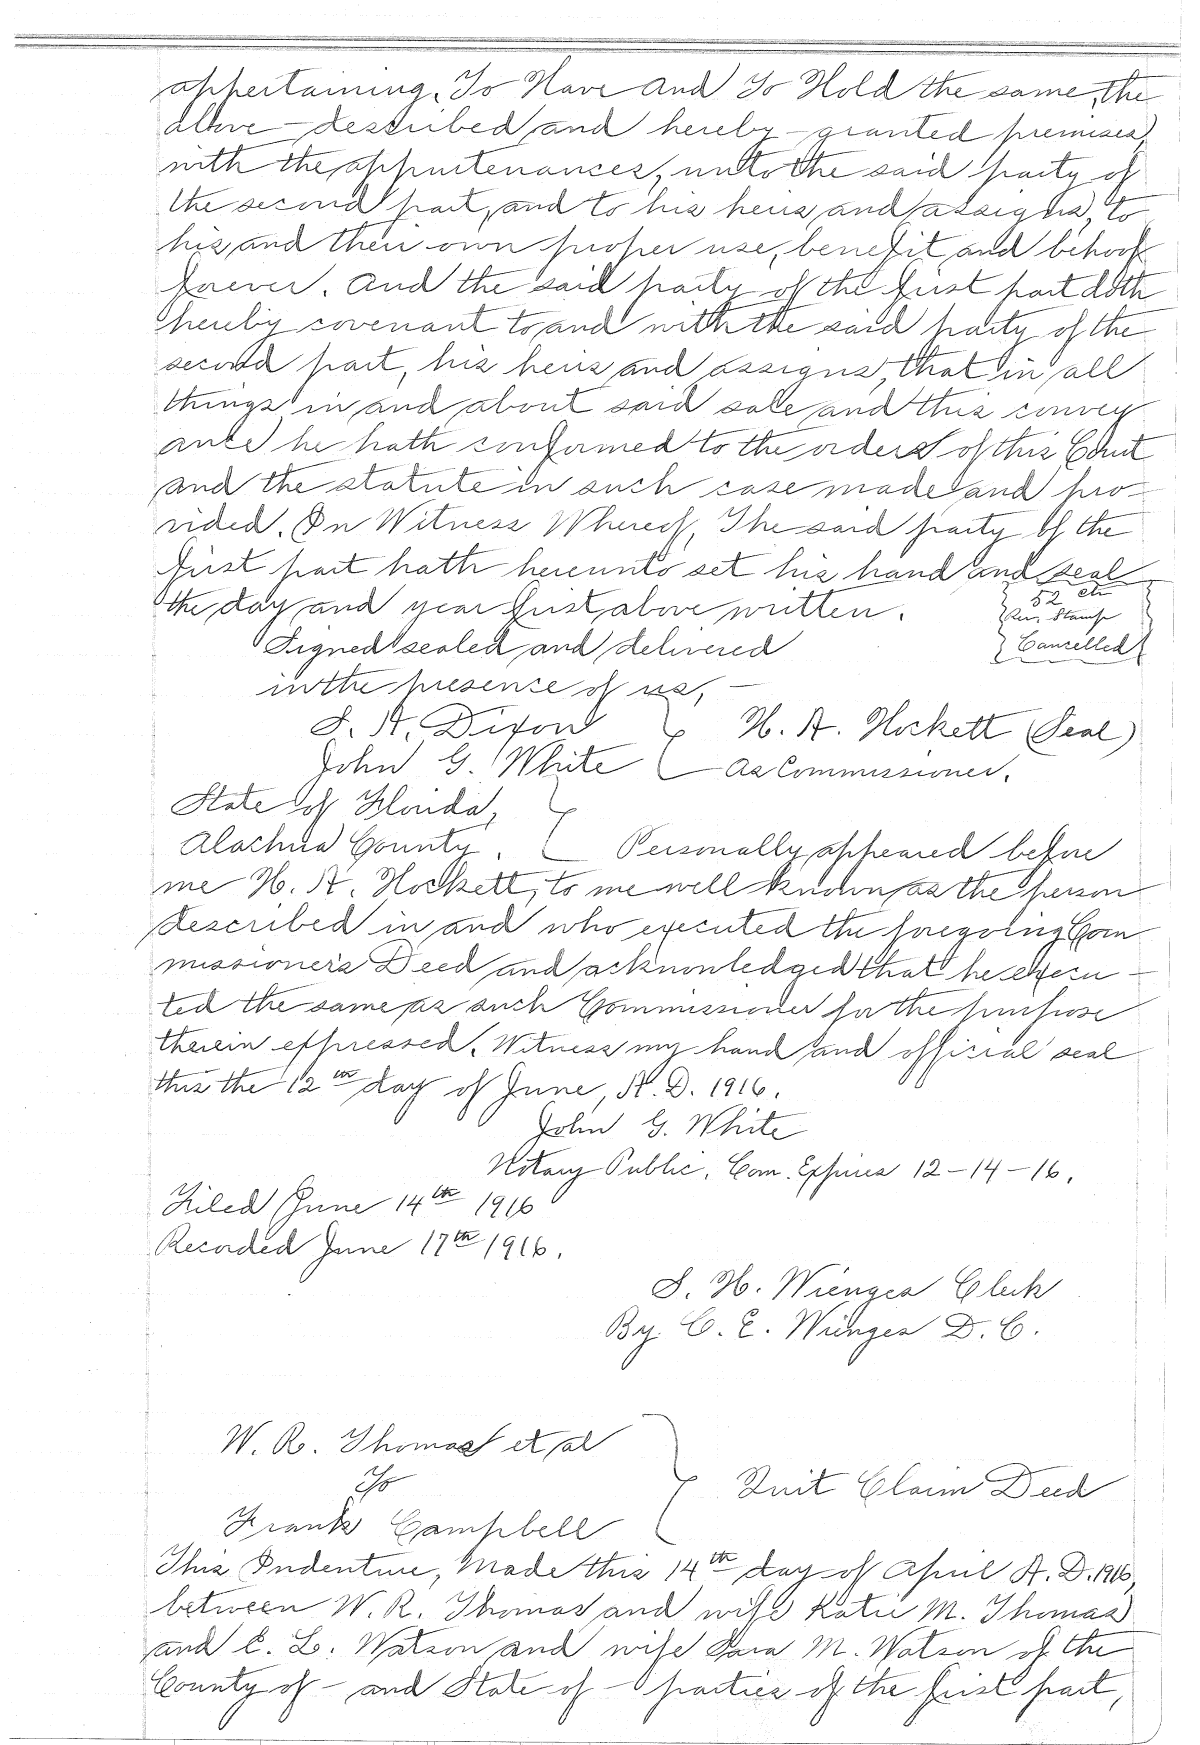 appertaining. To Have and To Hold the same, the
above-described and hereby-granted premises,
with the appurtenances, unto the said party of
the second part, and to his heirs and assigns, to
his and their own proper use, benefit and behoof
forever. And the said party of the first part doth
hereby covenant to and with the said party of the
second part, his heirs and assigns, that in all
things in and about said sale and this convey
ance he hath conformed to the orders of this Court
and the statute in such case made and pro-
vided. In Witness Whereof, The said party of the
first part hath hereunto set his hand and seal
the day and year first above written.
52 cts
Rev. Stamp
Cancelled
Signed sealed and delivered
in the presence of us, -
S. A. Dixon
John G. White
H. A. Hockett (Seal)
As Commissioner.
State of Florida,
Alachua County. Personally appeared before
me H. A. Hockett, to me well known as the person
described in and who executed the foregoing Com
missioner's Deed and acknowledged that he execu-
ted the same as such Commissioner for the purpose
therein expressed. Witness my hand and official seal
this the 12th day of June, A. D. 1916.
John G. White
Notary Public. Com. Expires 12-14-16.
Filed June 14th 1916
Recorded June 17th 1916.
S. H. Wienges Clerk
By C. E. Wienges D. C.
W. R. Thomas et al
To
Frank Campbell
Quit Claim Deed
This Indenture, Made this 14th day of April A. D. 1916,
between W. R. Thomas and wife Katie M. Thomas
and E. L. Watson and wife Sara M. Watson of the
County of - and State of - parties of the first part,